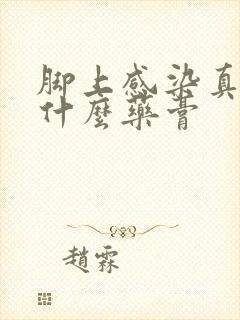 脚上感染真
什麼藥膏
趙霖